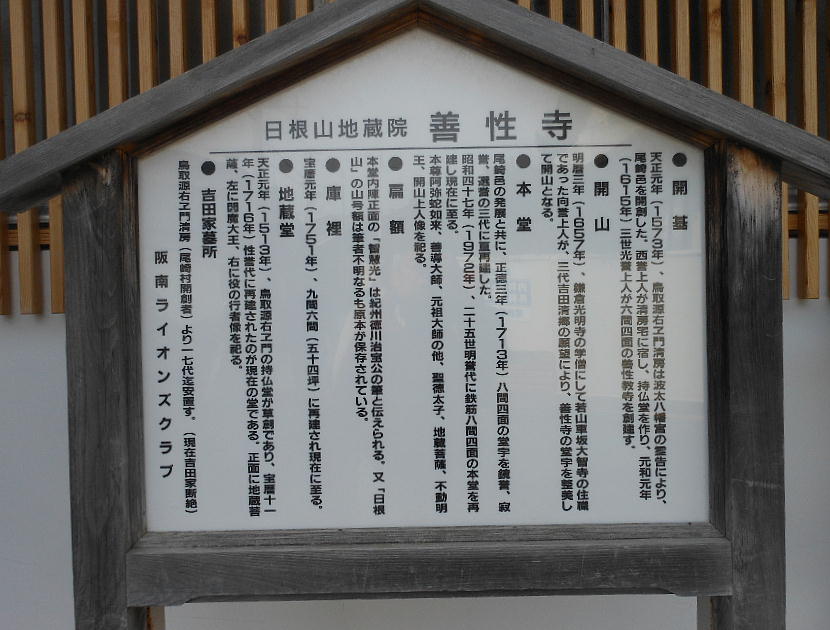 日根山地蔵院 善性寺
●開基
天正元年（1573年）、鳥取源右ヱ門清房は波太八幡宮の霊告により、
尾崎邑を開創した。西誉上人が清房宅に宿し、持仏堂を作り、元和元年
（1615年）三世光誉上人が六間四面の善性教寺を創建す。
●開山
明暦三年（1657年）、鎌倉光明寺の学僧にして若山東坂大智寺の住職
であった向誉上人が、三代吉田清郷の願望により、善性寺の堂宇を整美し
て開山となる。
●本堂
尾崎邑の発展と共に、正徳三年（1713年）八間四面の堂宇を鏡誉、寂
誉、選誉の三代に亘再建した。
昭和四十七年（1972年）、二十五世明誉代に鉄筋八間四面の本堂を再
建し現在に至る。
本尊阿弥陀如来、善導大師、元祖大師の他、聖徳太子、地蔵菩薩、不動明
王、開山上人像を祀る。
●扁額
本堂内陣正面の「智慧光」は紀州徳川治宝公の筆と伝えられる。又「日根
山」の山号額は筆者不明なるも原本が保存されている。
●庫裡
宝暦元年（1751年）、九間六間（五十四坪）に再建され現在に至る。
●地蔵堂
天正元年（1513年）、鳥取源右ヱ門の持仏堂が草創であり、宝暦十一
年（1716年）性誉代に再建されたのが現在の堂である。正面に地蔵菩
薩、左に閻魔大王、右に役の行者像を祀る。
●吉田家墓所
鳥取源右ヱ門清房（尾崎村開創者）より一七代迄安置す。（現在吉田家断絶）
阪南ライオンズクラブ